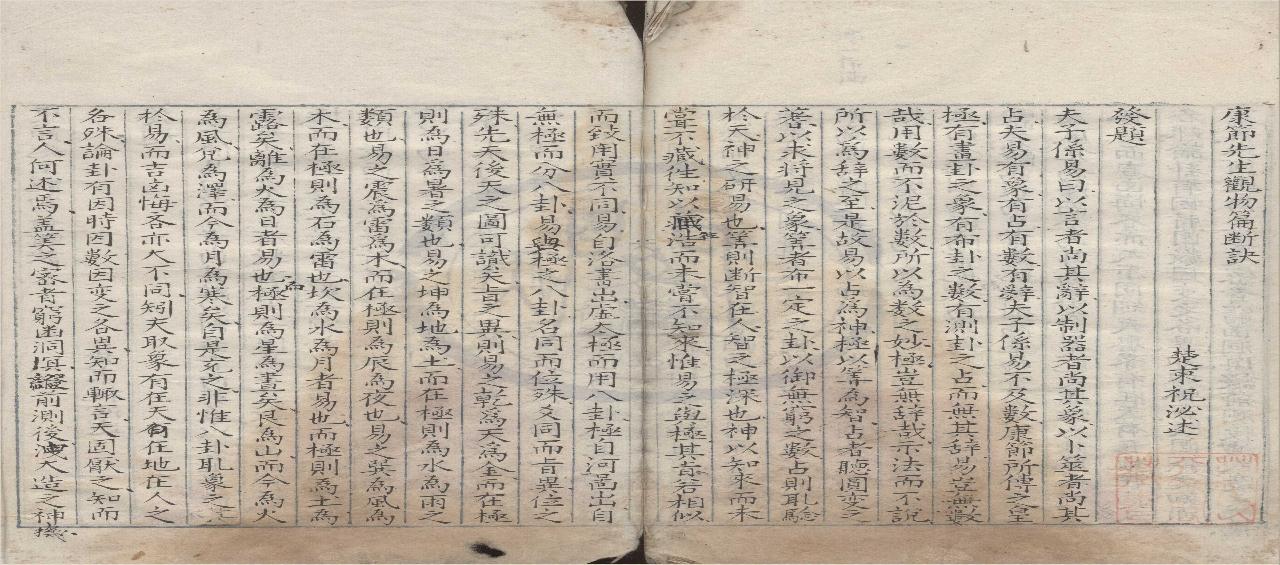 康節先生觀物篇断訣
楚東祝泌述
發題
夫子係易曰以言者尚其辭以制器者尚其象以卜筮者尚其
占夫易有象有占有數有辭夫子係易不及數康節所傳之皇
極有畫卦之象有布卦之數有測卦之占而無其辭易豈無數
哉用數而不泥於數所以為數之妙極豈無辭哉示法而不說
所以為辭之至是故易以占為神極以筭為智占者聽圓变之
蓍以求將見之象筭者布一定之卦以御無窮之數占則乩驗
於天神之研易也筭則断智在人智之極深也神以知來而未
嘗不藏徃知以藏徃而未嘗不知來惟易之與極其肯若相似
而致用實不同易自洛書出虛太極而用八卦極自河啚出自
無極而分八卦易與極之八卦名同而位殊爻同而肯異位之
殊先天後天之圖可識矣肯之異則易之乾為天為金而在極
則為日為暑之類也易之坤為地為土而在極則為水為雨之
類也易之震為雷為木而在極則為辰為夜也易之巽為風為
木而在極則為石為雷也坎為水為月者易也而極則為土為
露矣離為火為日者易也極則為星為晝矣艮為山而今為火
為風兌為澤而今為月為寒矣自是充之非惟八卦乩象之
於易而吉凶悔吝亦大不同矧夫取象有在天有在地在人之
各殊論卦有因時因數因变之各異知而輙言天固厭之知而
不言人何述焉盖筭之審者窮幽洞㝠證前測後洩大造之神機